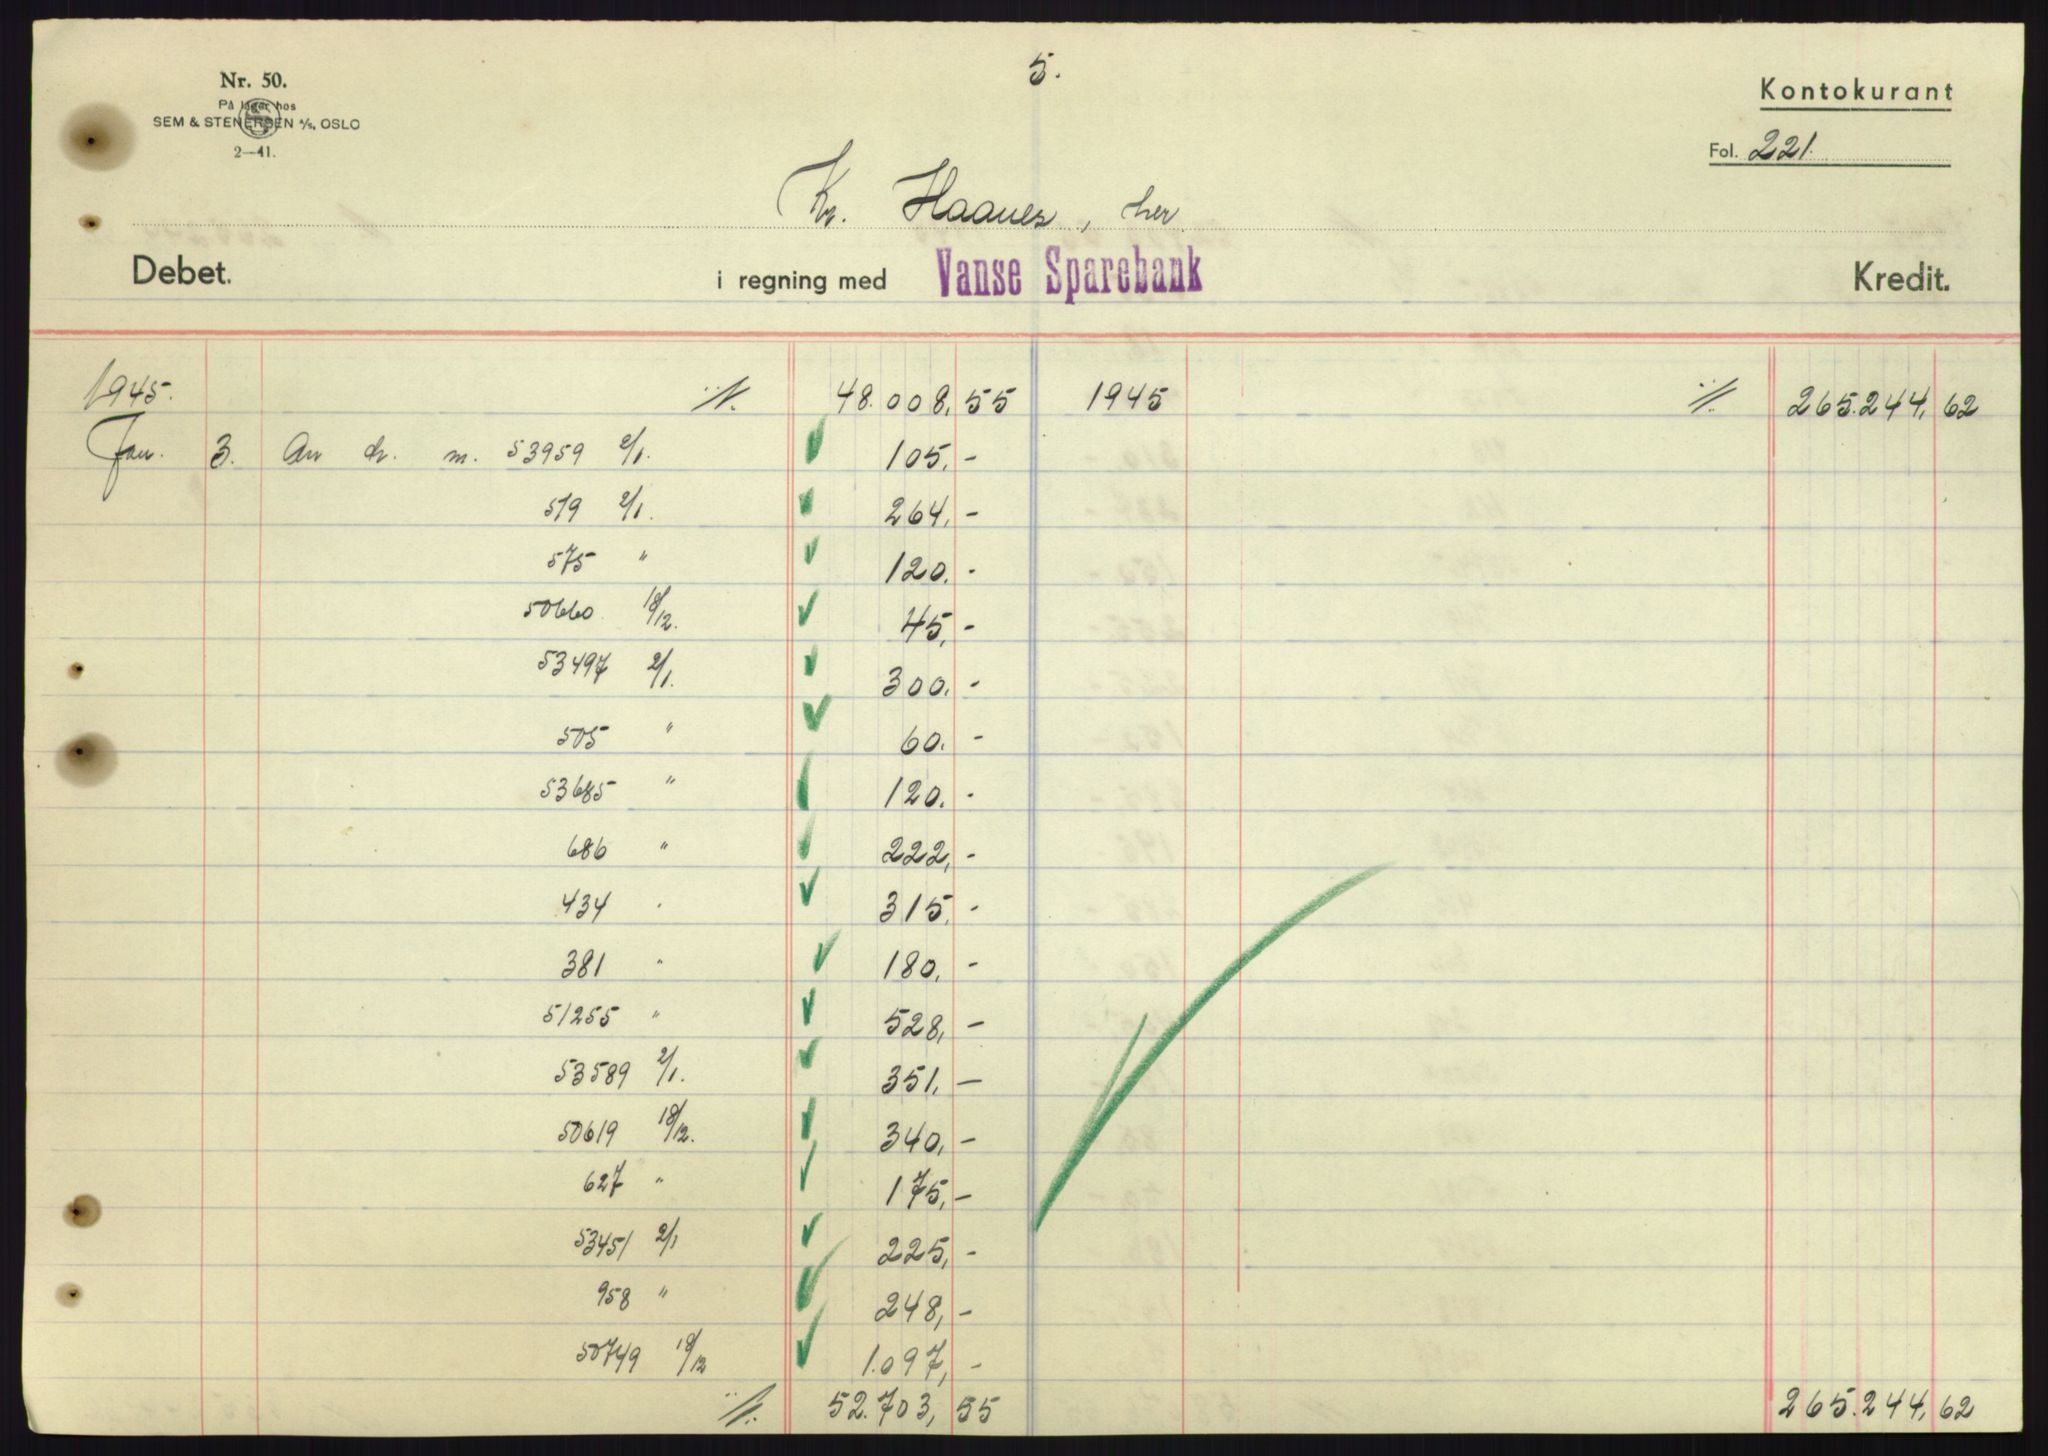 5.
Nr. 50.
På lager hos
SEM & STENERSEN A/S, OSLO
2—41.
Kontokurant
Fol. 221.
Kr. Haanes, her
Debet. i regning med Vanse Sparebank Kredit.
1945. ·/. 48.008,55 1945 ·/. 265.244,62
Jan. 3. An ch. m. 53959 2/1. 105,-
519 2/1. 264,-
575 " 120.-
50660 18/12. 45,-
53497 2/1. 300.-
505 " 60.-
53685 " 120.-
686 " 222,-
434 " 315,-
381 " 180,-
51255 " 528,-
53589 2/1. 351,-
50619 18/12. 340,-
627 " 175,-
53451 2/1 225,-
958 " 248,-
50749 18/12 1.097,-
·/. 52.703,55 265.244,62